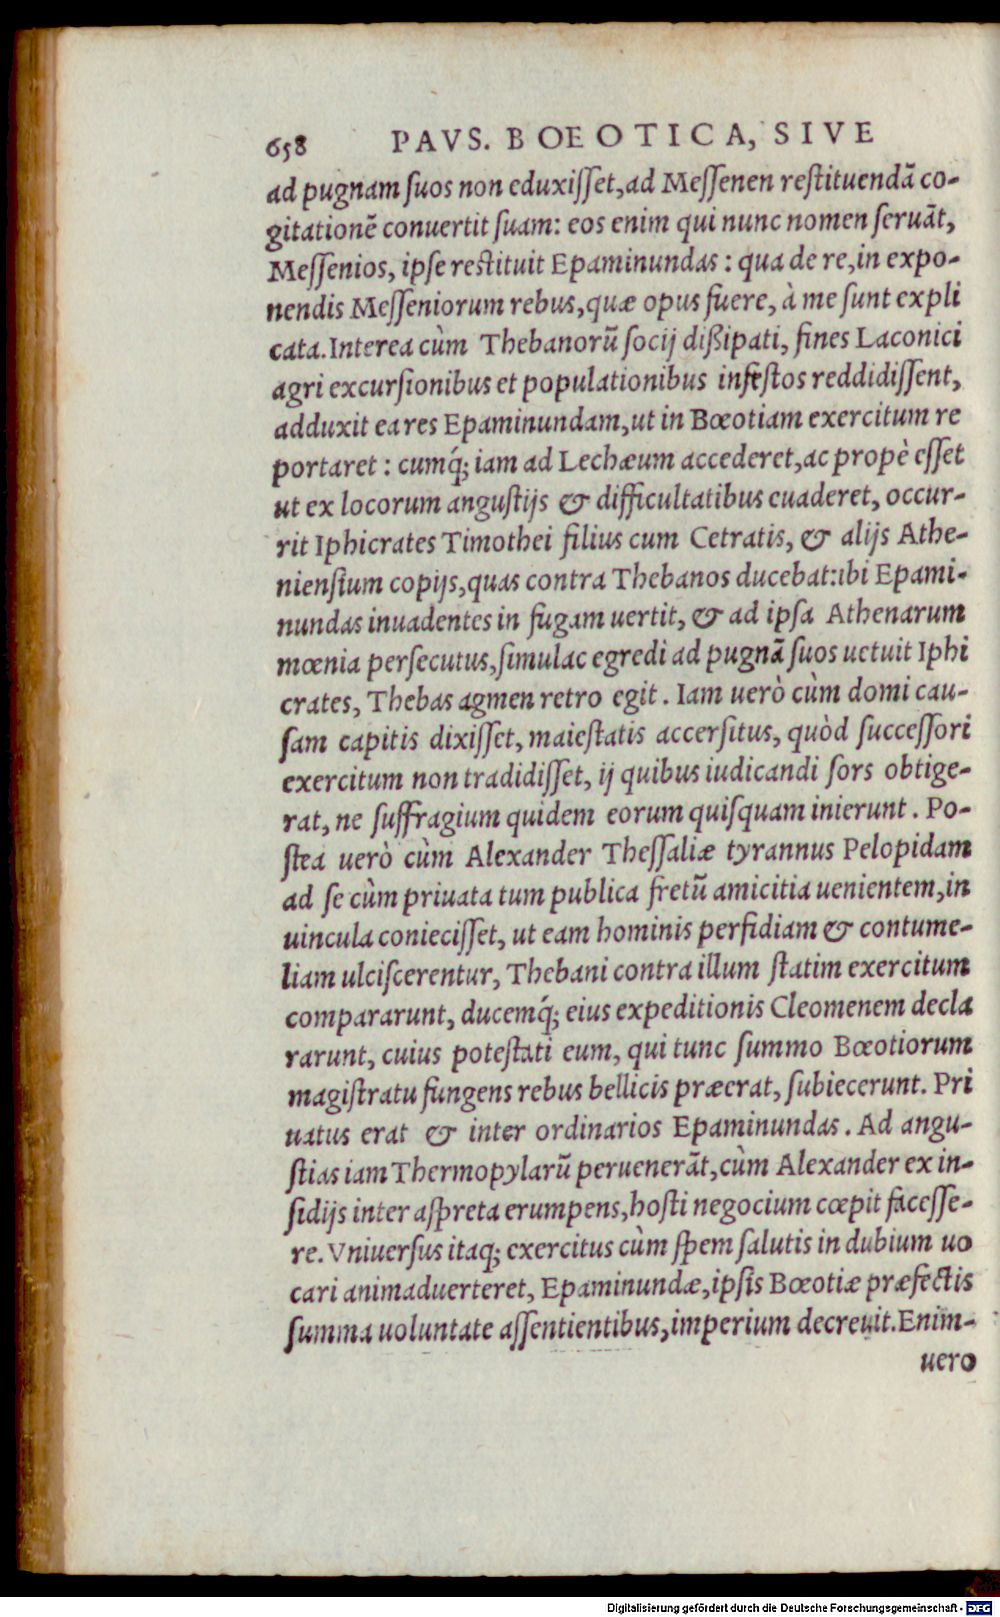 658 PAVS. BOEOTICA, SIVE
ad pugnam ſuos non eduxiſſet,ad Meſſenen reſtituendā co-
gitationē conuertit ſuam: eos enim qui nunc nomen ſeruāt,
Meſſenios, ipſe reſtituit Epaminundas : qua de re,in expo-
nendis Meſſeniorum rebus,quæ opus fuere, à me ſunt expli
cata.Interea cùm Thebanorū ſocij dißipati, fines Laconici
agri excurſionibus et populationibus infeſtos reddidiſſent,
adduxit ea res Epaminundam,ut in Bœotiam exercitum re
portaret : cumq́; iam ad Lechæum accederet,ac propè eſſet
ut ex locorum anguſtijs & difficultatibus euaderet, occur-
rit Iphicrates Timothei filius cum Cetratis, & alijs Athe-
nienſium copijs,quas contra Thebanos ducebat:ibi Epami-
nundas inuadentes in fugam uertit, & ad ipſa Athenarum
mœnia perſecutus,ſimulac egredi ad pugnā ſuos uetuit Iphi
crates, Thebas agmen retro egit . Iam uerò cùm domi cau-
ſam capitis dixiſſet, maieſtatis accerſitus, quòd ſucceſſori
exercitum non tradidiſſet, ij quibus iudicandi ſors obtige-
rat, ne ſuffragium quidem eorum quiſquam inierunt . Po-
ſtea uerò cùm Alexander Theſſaliæ tyrannus Pelopidam
ad ſe cùm priuata tum publica fretū amicitia uenientem,in
uincula conieciſſet, ut eam hominis perfidiam & contume-
liam ulciſcerentur, Thebani contra illum ſtatim exercitum
compararunt, ducemq́; eius expeditionis Cleomenem decla
rarunt, cuius poteſtati eum, qui tunc ſummo Bœotiorum
magiſtratu fungens rebus bellicis præerat, ſubiecerunt. Pri
uatus erat & inter ordinarios Epaminundas . Ad angu-
ſtias iam Thermopylarū peruenerāt,cùm Alexander ex in-
ſidijs inter aſpreta erumpens,hoſti negocium cœpit faceſſe-
re. Vniuerſus itaq; exercitus cùm ſpem ſalutis in dubium uo
cari animaduerteret, Epaminundæ,ipſis Bœotiæ præfectis
ſumma uoluntate aſſentientibus,imperium decreuit.Enim-
uero
Digitalisierung gefördert durch die Deutsche Forschungsgemeinschaft - DFG